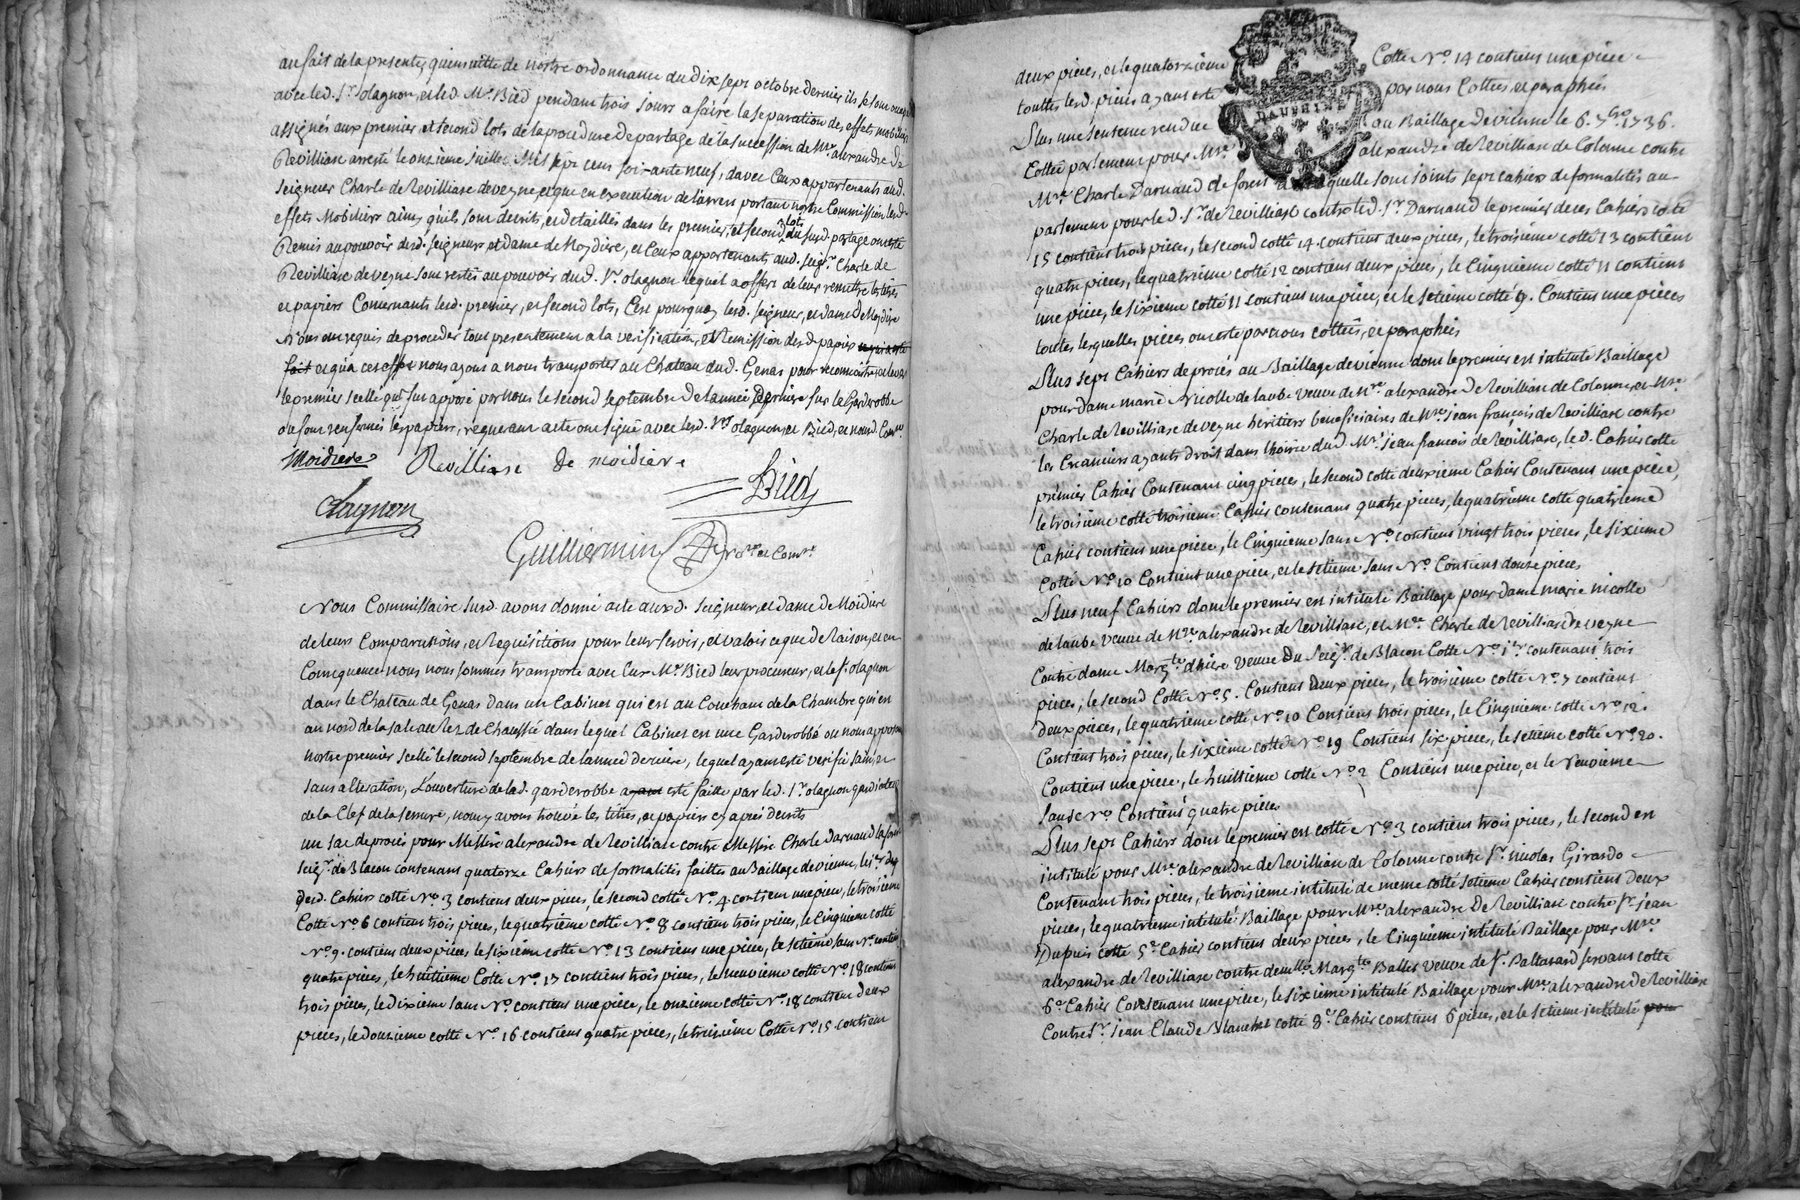 au fait de la presente, qu'ensuitte de nostre ordonnance du dix sept octobre dernier ils se sont
avec led. Sr. olagnon, et led. Me. Bied pendant trois jours a faire la separation des effets mobiliers
assignés aux premier et second lots de la procedure de partage de la succession de Mre. alexandre de
Revilliasc arresté le onzieme juillet mil sept cent soixante neuf, d'avec ceux appartenants aud.
seigneur Charle de Revilliasc de veyne, et que en execution de l'arrest portant nostre Commission lesd.
effets Mobiliers ainsy qu'ils sont decrits, et detaillés dans les premier, et second lots du susd. partage ont esté
Remis au pouvoir desd. seigneur et dame de Moydiere, et ceux appartenants aud. seigr. Charle de
Revilliasc de veyne sont restés au pouvoir dud. Sr. olagnon lequel a offert de leur remettre les titres
et papiers Concernants lesd. premier, et second lots, C'est pourquoy lesd. seigneur, et dame de Moydiere
Nous ont requis de proceder tout presentement a la verification, et Remission desd. papiers
fait et qu'a cet effet nous ayons a nous transporter au Chateau dud. Genas pour reconnoitre, et lever
le premier scellé qui fut apposé par Nous le second septembre de l'année derniere sur le Garderobbe
ou sont renfermés les papiers, requerant acte ont signé avec lesd. Srs. olagnon, et Bied, et nousd. Comre.
Moidiere Revilliasc de moidiere
Bied
Olagnon
Guillermin Nore. et Comre.
Nous Commissaire susd. avons donné acte auxd. seigneur, et dame de Moidiere
de leurs Comparutions, et Requisitions pour leur servir, et valoir ce que de Raison, et en
Consequence nous nous sommes transporté avec eux Me. Bied leur procureur, et le Sr. olagnon
dans le Chateau de Genas dans un Cabinet qui est au Couchant de la Chambre qui est
au nord de la sale au Rez de Chaussée dans lequel Cabinet est une Garderobbé ou nous apposames
nostre premier scellé le second septembre de l'année derniere, lequel ayant esté verifié sain, et
sans alteration, L'ouverture de lad. garderobbe ayant esté faitte par led. Sr. olagnon gardiateur
de la Clef de la serrure, nous y avons trouvé les titres, et papiers cy apres decrits
un sac de procés pour Messire alexandre de Revilliasc contre Messire Charle darnaud la forest
Seigr. de Blacon contenant quatorze Cahiers de formalités faittes au Baillage de vienne, le 1er. des
desd. Cahiers cotté No. 3 contient deux pieces, le second cotté No. 4 contient une piece, le troisieme
Cotté No. 6 contient trois pieces, le quatrieme cotté No. 8 contient trois pieces, le cinquieme cotté
No. 9. contient deux pieces le sixieme cotté No. 13 contient une piece, le setieme sans No. contient
quatre pieces, le huitieme Cotté No. 17 contient trois pieces, le neuvieme cotté No. 18 contient
trois pieces, le dixieme sans No. contient une piece, le onzieme cotté No. 18 contient deux
pieces, le douzieme cotté No. 16 contient quatre pieces, le treizieme Cotté No. 15 contient
deux pieces, et le quatorzieme Cotté No. 14 contient une piece
DAUPHINÉ
touttes lesd. pieces ayant esté par nous Cottées, et paraphées
Plus une sentence rendue au Baillage de vienne le 6. 7bre. 1736.
Cottée parlement pour Mre. alexandre de Revilliasc de Colonne contre
Mre. Charle Darnaud de forest a laquelle sont joints sept cahiers de formalités au
parlement pour le d. Sr. de Revilliasc contre led. Sr. Darnaud le premier de ces Cahiers cotté
15 contient trois pieces, le second cotté 14 contient deux pieces, le troisieme cotté 13 contient
quatre pieces, le quatrieme cotté 12 contient deux pieces, le Cinquieme cotté 11 contient
une piece, le sixieme cotté 11 contient une piece, et le setieme cotté 9. Contient une pieces
toutes lesquelles pieces ont esté par nous cottées, et paraphées
Plus sept Cahiers de procés au Baillage de vienne dont le premier est intitulé Baillage
pour dame marie Nicolle de laube veuve de Mre. alexandre de Revilliasc de Colonne, et Mre.
Charle de Revilliasc de veyne heritiers beneficiaires de Mre. jean françois de Revilliasc contre
les Creanciers ayants droit dans l'hoirie dud. Mre. jean françois de Revilliasc, le d. Cahier cotté
premier Cahier Contenant cinq pieces, le second cotté deuxieme Cahier Contenant une piece,
le troisieme cotté troisieme Cahier contenant quatre pieces, le quatrieme cotté quatrieme
Cahier contient une piece, le Cinquieme sans No. contient vingt trois pieces, le sixieme
Cotté No. 10 Contient une piece, et le setieme sans No. Contient douze pieces
Plus neuf Cahiers dont le premier est intitulé Baillage pour dame marie nicolle
de laube veuve de Mre. alexandre de Revilliasc, et Mre. Charle de Revilliasc de veyne
Contre dame Margte. dhiere veuve du Seigr. de Blacon Cotté No. 1er. contenant trois
pieces, le second Cotté No. 5. Contient deux pieces, le troisieme cotté No. 7 contient
deux pieces, le quatrieme cotté No. 10 Contient trois pieces, le Cinquieme cotté No. 12.
Contient trois pieces, le sixieme cotté No. 19 Contient six pieces, le setieme cotté No. 20.
Contient une piece, le huittieme cotté No. 2 Contient une piece, et le Neuvieme
sans No. Contient quatre pieces
Plus sept Cahiers dont le premier est cotté No. 3 contient trois pieces, le second est
intitulé pour Mre. alexandre de Revilliasc de Colonne contre Sr. nicolas Girardo
Contenant trois pieces, le troisieme intitulé de meme cotté setieme Cahier contient deux
pieces, le quatrieme intitulé Baillage pour Mre. alexandre de Revilliasc contre Sr. jean
Dupuis cotté 5e. Cahier contient deux pieces, le Cinquieme intitulé Baillage pour Mre.
alexandre de Revilliasc contre demlle. Margte. Ballet veuve de Sr. Baltasard servant cotté
6e. Cahier Contenant une piece, le sixieme intitulé Baillage pour Mre. alexandre de Revilliasc
Contre Sr. jean Claude Blanchet cotté 8e. Cahier contient 6 pieces, et le setieme intitulé pour